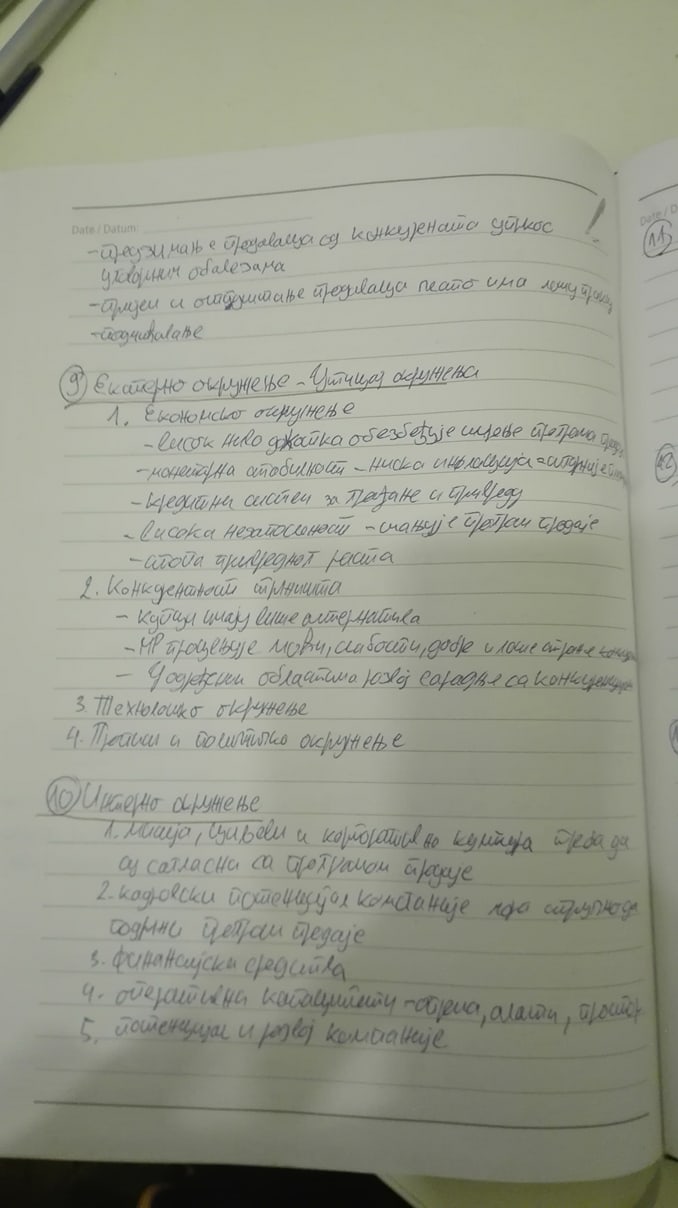 Date / Datum:
-преузимање продаваца од конкурената упркос
уговорним обавезама
-пријем и отпуштање продаваца
-подмићивање
9 Екстерно окружење - Утицај окружења
1. Економско окружење
-висок ниво дохотка обезбеђује програма
-монетарна стабилност - ниска инфлација =
-кредитни систем за грађане и привреду
-висока незапосленост - смањује програм продаје
-стопа привредног раста
2. Конкурентност тржишта
- купци имају више алтернатива
-МР процењује моћи, слабости, добре и лоше стране
- У одређеним областима развој сарадње са
3. Технолошко окружење
4. Прописи и политичко окружење
10 Интерно окружење
1. мисија, циљеви и корпоративна култура треба да
су сагласни са програмом продаје
2. кадровски потенцијал компаније мора да
програм продаје
3. финансијска средства
4. оперативни капацитети - опрема, алати, простор
5. потенцијал и развој компаније
11